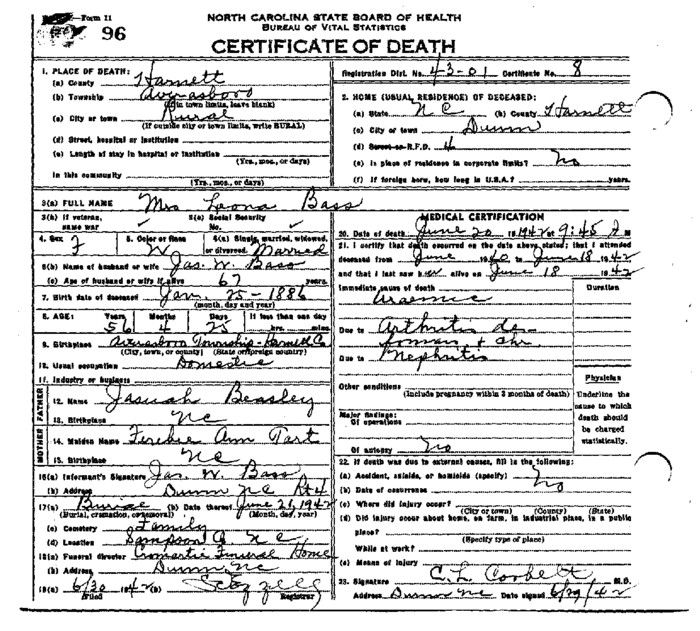 Form 11
96
NORTH CAROLINA STATE BOARD OF HEALTH
BUREAU OF VITAL STATISTICS
CERTIFICATE OF DEATH
1. PLACE OF DEATH:
(a) County Harnett
(b) Township Averasboro
(If in town limits, leave blank)
(c) City or town Rural
(If outside city or town limits, write RURAL)
(d) Street, hospital or institution
(e) Length of stay in hospital or institution
(Yrs., mos., or days)
In this community
(Yrs., mos., or days)
Registration Dist. No. 43-01 Certificate No. 8
2. HOME (USUAL RESIDENCE) OF DECEASED:
(a) State N C (b) County Harnett
(c) City or town Dunn
(d) Street or R.F.D. 4
(e) Is place of residence in corporate limits? No
(f) If foreign born, how long in U.S.A.? years.
3(a) FULL NAME Mrs Leona Bass
3(b) If veteran, name war
3(c) Social Security No.
4. Sex F
5. Color or Race W
6(a) Single, married, widowed, or divorced. Married
6(b) Name of husband or wife Jas. W. Bass
(c) Age of husband or wife if alive 67 years.
7. Birth date of deceased Jan. 25 - 1886
(month, day and year)
8. AGE: Years Months Days If less than one day
56 4 25 hrs. mins.
9. Birthplace Averasboro Township - Harnett Co
(City, town, or county) (State or foreign country)
10. Usual occupation Domestic
11. Industry or business
FATHER
12. Name Beasley
13. Birthplace NC
MOTHER
14. Maiden Name Ann Tart
15. Birthplace NC
16(a) Informant's Signature Jas. W. Bass
(b) Address Dunn NC Rt 4
17(a) Burial (b) Date thereof June 21, 1942
(Burial, cremation, or removal) (Month, day, year)
(c) Cemetery Family
(d) Location Sampson Co N C
18(a) Funeral director Cromartie Funeral Home
(b) Address Dunn, NC
19(a) 6/30 1942 (b)
Filed Registrar
MEDICAL CERTIFICATION
20. Date of death June 20 1942 at 9:45 M
21. I certify that death occurred on the date above stated; that I attended
deceased from June 1940 to June 18 1942
and that I last saw her alive on June 18 1942
Immediate cause of death Duration
Uraemic
Due to Arthritis de-
forman & chr
Due to Nephritis
Other conditions
(Include pregnancy within 3 months of death)
Major findings:
Of operations
Of autopsy No
Physician
Underline the
cause to which
death should
be charged
statistically.
22. If death was due to external causes, fill in the following:
(a) Accident, suicide, or homicide (specify) No
(b) Date of occurrence
(c) Where did injury occur?
(City or town) (County) (State)
(d) Did injury occur about home, on farm, in industrial place, in a public
place?
(Specify type of place)
While at work?
(e) Means of injury
23. Signature C. L. Corbett M.D.
Address Dunn NC Date signed 6/29/42